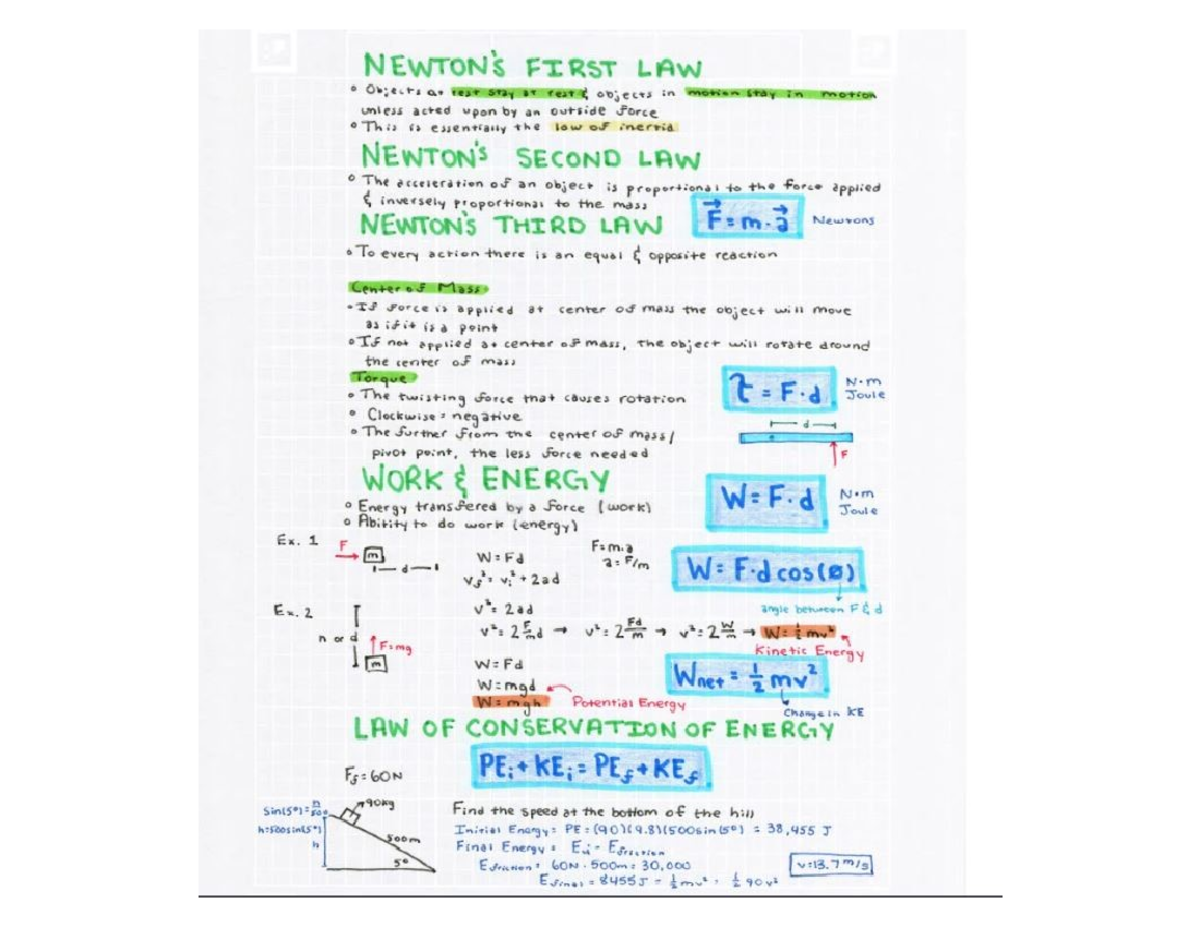 NEWTON'S FIRST LAW
• Objects at rest stay at rest & objects in motion stay in motion
unless acted upon by an outside force
• This is essentially the law of inertia
NEWTON'S SECOND LAW
• The acceleration of an object is proportional to the force applied
& inversely proportional to the mass
F⃗ = m · a⃗ Newtons
NEWTON'S THIRD LAW
• To every action there is an equal & opposite reaction
Center of Mass
• If force is applied at center of mass the object will move
as if it is a point
• If not applied at center of mass, the object will rotate around
the center of mass
Torque
• The twisting force that causes rotation
• Clockwise = negative
• The further from the center of mass/
pivot point, the less force needed
τ = F · d
N·m
Joule
d
F
WORK & ENERGY
• Energy transfered by a force (work)
• Ability to do work (energy)
W = F · d
N·m
Joule
Ex. 1
F
m
d
W = Fd
v_f² = v_i² + 2ad
F = m·a
a = F/m
W = F·d cos(ø)
angle between F & d
v² = 2ad
v² = 2 F/m d → v² = 2 Fd/m → v² = 2 W/m → W = ½ mv²
Kinetic Energy
Ex. 2
h or d
F=mg
m
W = Fd
W = mgd
W = mgh
Potential Energy
Wnet = ½ mv²
Change in KE
LAW OF CONSERVATION OF ENERGY
PEi + KEi = PEf + KEf
Ff = 60N
90kg
sin(5°) = h/500
h=500sin(5°)
h
500m
5°
Find the speed at the bottom of the hill
Initial Energy = PE = (90)(9.8)(500sin(5°) = 38,455 J
Final Energy = Ei - Efriction
Efriction = 60N · 500m = 30,000
Efinal = 8455J = ½mv² = ½ 90v²
v=13.7m/s